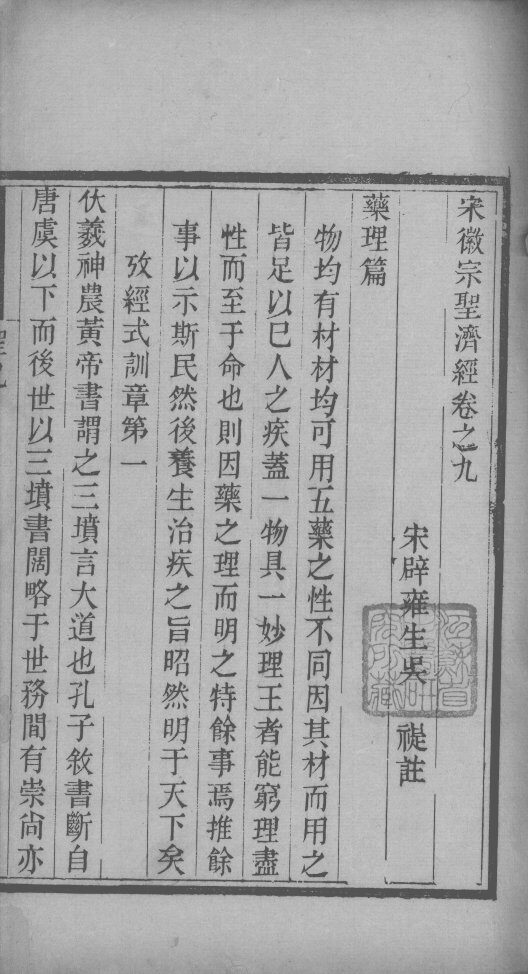 宋徽宗聖濟經卷之九
宋辟雍生吳　禔註
藥理篇
物均有材材均可用五藥之性不同因其材而用之
皆足以已人之疾蓋一物具一妙理王者能窮理盡
性而至于命也則因藥之理而明之特餘事焉推餘
事以示斯民然後養生治疾之旨昭然明于天下矣
攷經式訓章第一
伏羲神農黃帝書謂之三墳言大道也孔子敘書斷自
唐虞以下而後世以三墳書闊略于世務間有崇尚亦